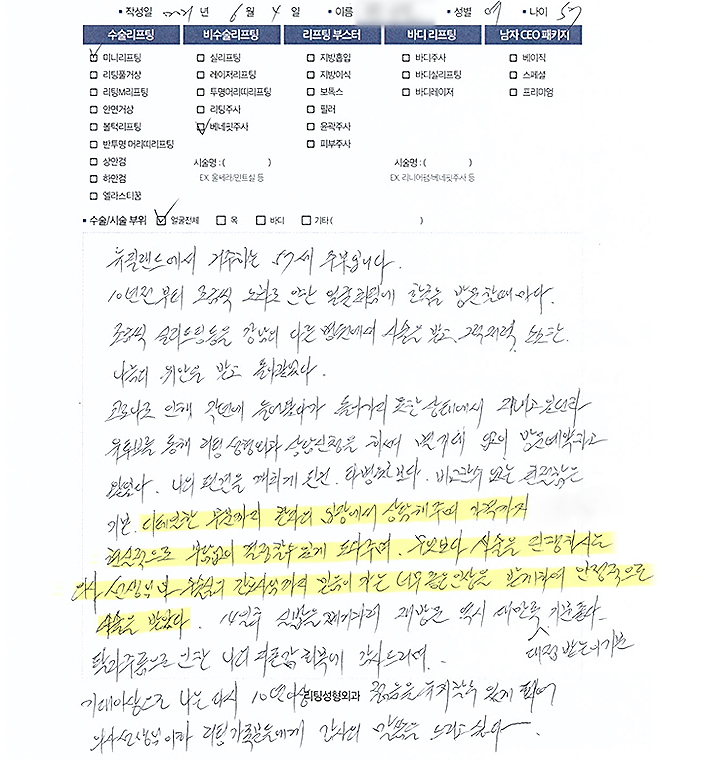 • 작성일 2021 년 6 월 4 일 • 이름 • 성별 여 • 나이 57
수술리프팅 비수술리프팅 리프팅 부스터 바디 리프팅 남자 CEO 패키지
미니리프팅 실리프팅 지방흡입 바디주사 베이직
리팅풀거상 레이저리프팅 지방이식 바디실리프팅 스페셜
리팅M리프팅 투명머리띠리프팅 보톡스 바디레이저 프리미엄
안면거상 리팅주사 필러
볼턱리프팅 베네핏주사 윤곽주사
반투명 머리띠리프팅 피부주사
상안검 시술명 : ( ) 시술명 : ( )
하안검 EX. 울쎄라/민트실 등 EX. 리니어펌/베네핏주사 등
엘라스티꿈
• 수술/시술 부위 얼굴전체 목 바디 기타 ( )
뉴질랜드에서 거주하는 57세 주부입니다.
10년전부터 조금씩 노화로 인한 얼굴처짐에 한국을 방문할때마다.
조금씩 실리프팅등을 강남의 다른 병원에서 시술을 받고, 그럭저럭, 소소한
나름의 위안을 받고 돌아갔었다.
코로나로 인해 작년에 들어왔다가 돌아가지 못한 상태에서 지내고 있던중
유투브를 통해 리팅성형외과 상담신청을 하여 방문예약하고
왔었다. 나의 타병원보다. 비교할수 없는
기분. 디테일한 부분까지 환자의 입장에서 상담해주며 가격까지
현실적으로 부담없이 결정할수 있게 도와주며. 무엇보다 시술을 진행하시는
의사 선생님과 간호사까지 믿음이 가는 너무 좋은인상을 받게하여 안정적으로
시술을 받았다. 14일후 실밥을 제거하러 재방문 역시 새만큼 기분좋다.
대접 받는이기분
팔자주름으로 인한 나의 회복에 감사드리며.
기대이상으로 나는 다시 10년이상 젊음을 유지할수 있게 되어
리팅성형외과
의사선생님이하 리팅가족분들에게 감사의 말씀을 드리고 싶다